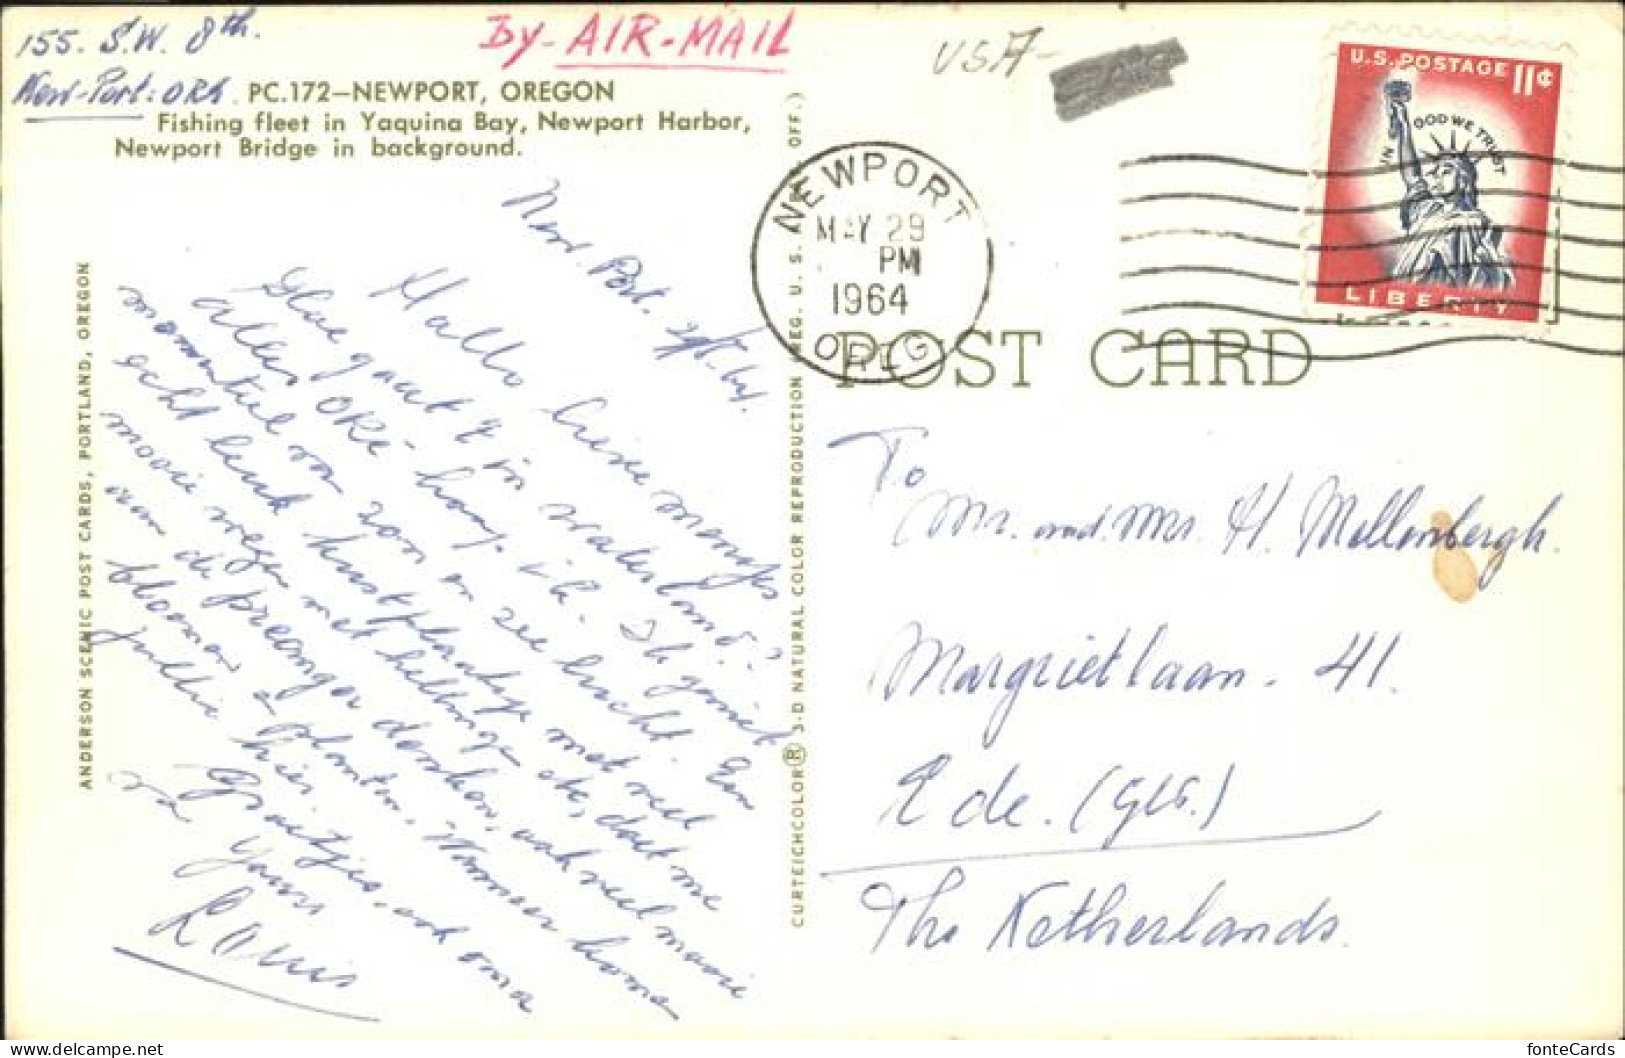 155. S.W. 8th.
New-Port: ORE.
By-AIR-MAIL
USA-
PC.172—NEWPORT, OREGON
Fishing fleet in Yaquina Bay, Newport Harbor,
Newport Bridge in background.
U.S. POSTAGE 11¢
IN GOD WE TRUST
LIBERTY
NEWPORT
MAY 29
PM
1964
OREG
POST CARD
ANDERSON SCENIC POST CARDS, PORTLAND, OREGON
CURTEICHCOLOR® 3-D NATURAL COLOR REPRODUCTION (REG. U.S. PAT. OFF.)
New. Port. 64.
Hallo lieve mensjes
Hoe gaat 't in vaderland?
alles OKE- hoop ik. Ik geniet
momenteel van zon en zee lucht. Een
echt leuk kustplaatsje met veel
mooie wegen met hellingen etc, doet me
aan de preanger denken, ook veel mooie
bloemen & planten. Wanneer komen
jullie hier.
Groetjes, ook oma
Yours
Louis
To
Mr. and. Mrs. H. Mellenbergh.
Margrietlaan. 41.
Ede. (Gld.)
The Netherlands.
fonteCards